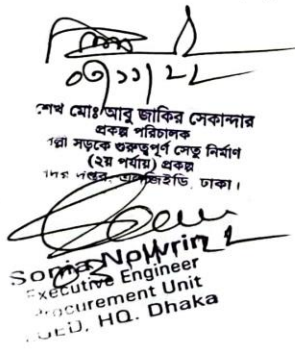 ০৭/১১/২২
শেখ মোঃ আবু জাকির সেকান্দার
প্রকল্প পরিচালক
সড়কে গুরুত্বপূর্ণ সেতু নির্মাণ
(২য় পর্যায়) প্রকল্প
ঢাকা।
Sonia Nowrin
Executive Engineer
Procurement Unit
HQ. Dhaka